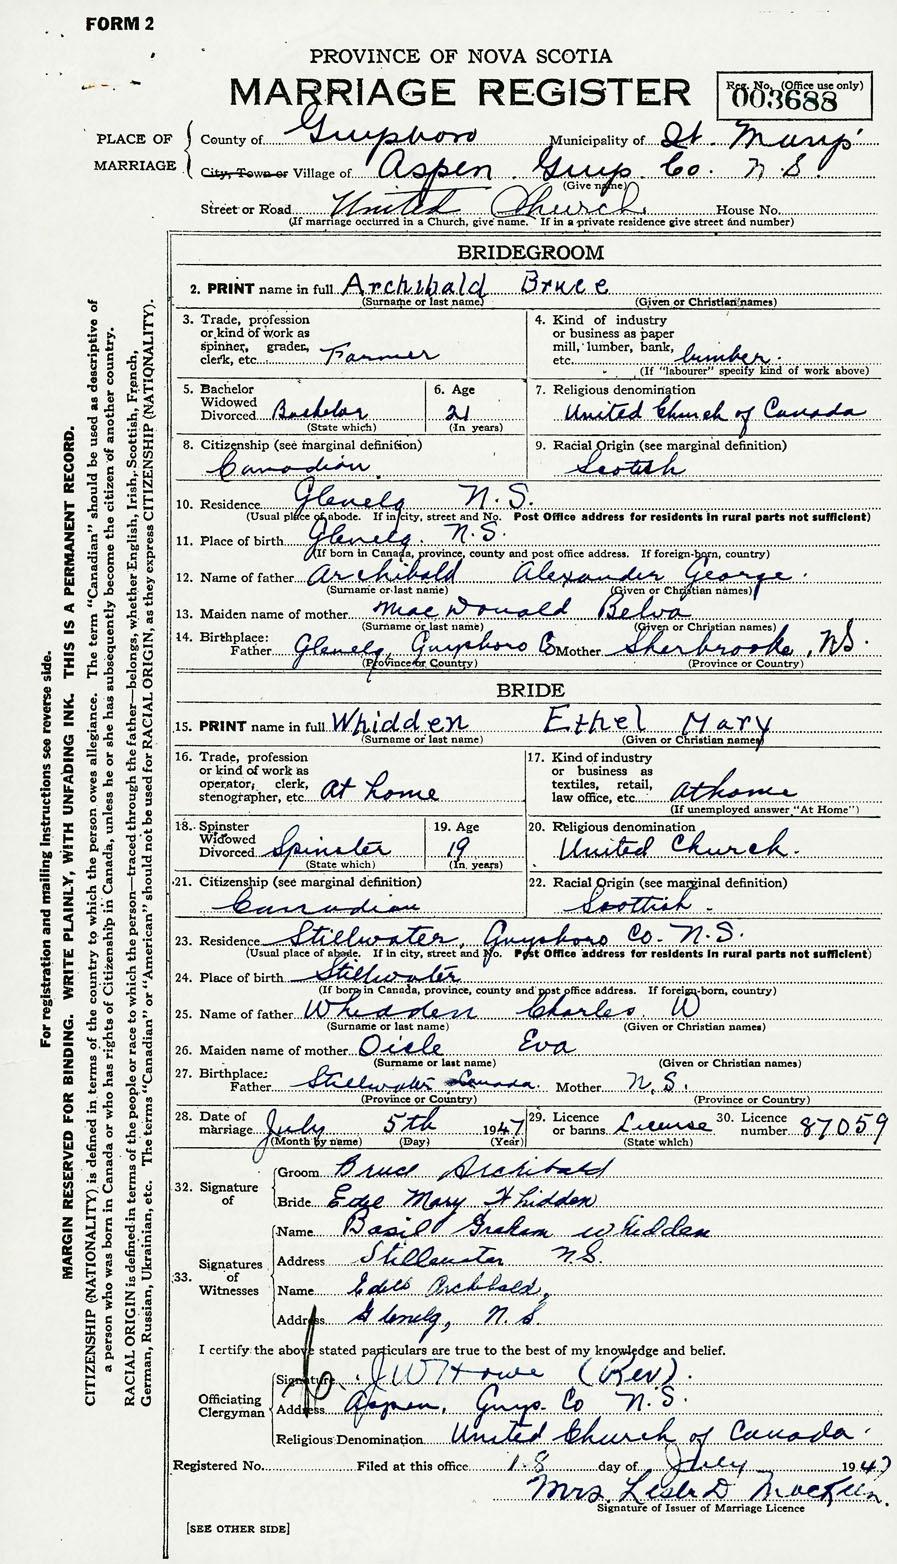 FORM 2
PROVINCE OF NOVA SCOTIA
MARRIAGE REGISTER
Reg. No. (Office use only)
003688
PLACE OF MARRIAGE
County of Guysboro Municipality of St. Marys'
City, Town or Village of Aspen Guys. Co. N.S.
(Give name)
Street or Road United Church House No.
(If marriage occurred in a Church, give name. If in a private residence give street and number)
BRIDEGROOM
2. PRINT name in full Archibald Bruce
(Surname or last name) (Given or Christian names)
3. Trade, profession or kind of work as spinner, grader, clerk, etc. Farmer
4. Kind of industry or business as paper mill, lumber, bank, etc. lumber.
(If "labourer" specify kind of work above)
5. Bachelor Widowed Divorced Bachelor
(State which)
6. Age 21
(In years)
7. Religious denomination
United Church of Canada
8. Citizenship (see marginal definition)
Canadian
9. Racial Origin (see marginal definition)
Scotish
10. Residence Glenelg N.S.
(Usual place of abode. If in city, street and No. Post Office address for residents in rural parts not sufficient)
11. Place of birth Glenelg. N.S.
(If born in Canada, province, county and post office address. If foreign-born, country)
12. Name of father Archibald Alexander George.
(Surname or last name) (Given or Christian names)
13. Maiden name of mother MacDonald Belva
(Surname or last name) (Given or Christian names)
14. Birthplace: Father Glenelg, Guysboro Co Mother Sherbrooke, N.S.
(Province or Country) (Province or Country)
BRIDE
15. PRINT name in full Whidden Ethel Mary
(Surname or last name) (Given or Christian names)
16. Trade, profession or kind of work as operator, clerk, stenographer, etc. At home
17. Kind of industry or business as textiles, retail, law office, etc. at home
(If unemployed answer "At Home")
18. Spinster Widowed Divorced Spinster
(State which)
19. Age 19
(In years)
20. Religious denomination
United Church.
21. Citizenship (see marginal definition)
Canadian
22. Racial Origin (see marginal definition)
Scottish.
23. Residence Stillwater, Guysboro Co. N.S.
(Usual place of abode. If in city, street and No. Post Office address for residents in rural parts not sufficient)
24. Place of birth Stillwater
(If born in Canada, province, county and post office address. If foreign-born, country)
25. Name of father Whidden Charles W
(Surname or last name) (Given or Christian names)
26. Maiden name of mother Eva
(Surname or last name) (Given or Christian names)
27. Birthplace: Father Stillwater Canada. Mother N.S.
(Province or Country) (Province or Country)
28. Date of marriage July 5th 1947
(Month by name) (Day) (Year)
29. Licence or banns License
(State which)
30. Licence number 87059
32. Signature of
Groom Bruce Archibald
Bride Mary Whidden
33. Signatures of Witnesses
Name Basil Graham Whidden
Address Stillwater N.S.
Name Archibald,
Address Glenelg, N.S.
I certify the above stated particulars are true to the best of my knowledge and belief.
Officiating Clergyman
Signature J W Howe (Rev).
Address Aspen, Guys. Co N.S.
Religious Denomination United Church of Canada.
Registered No. Filed at this office 18 day of July 1947
Mrs. D MacKeen.
Signature of Issuer of Marriage Licence
[SEE OTHER SIDE]
For registration and mailing instructions see reverse side.
MARGIN RESERVED FOR BINDING. WRITE PLAINLY, WITH UNFADING INK. THIS IS A PERMANENT RECORD.
CITIZENSHIP (NATIONALITY) is defined in terms of the country to which the person owes allegiance. The term "Canadian" should be used as descriptive of
a person who was born in Canada or who has rights of Citizenship in Canada, unless he or she has subsequently become the citizen of another country.
RACIAL ORIGIN is defined in terms of the people or race to which the person—traced through the father—belongs, whether English, Irish, Scottish, French,
German, Russian, Ukrainian, etc. The terms "Canadian" or "American" should not be used for RACIAL ORIGIN, as they express CITIZENSHIP (NATIONALITY).